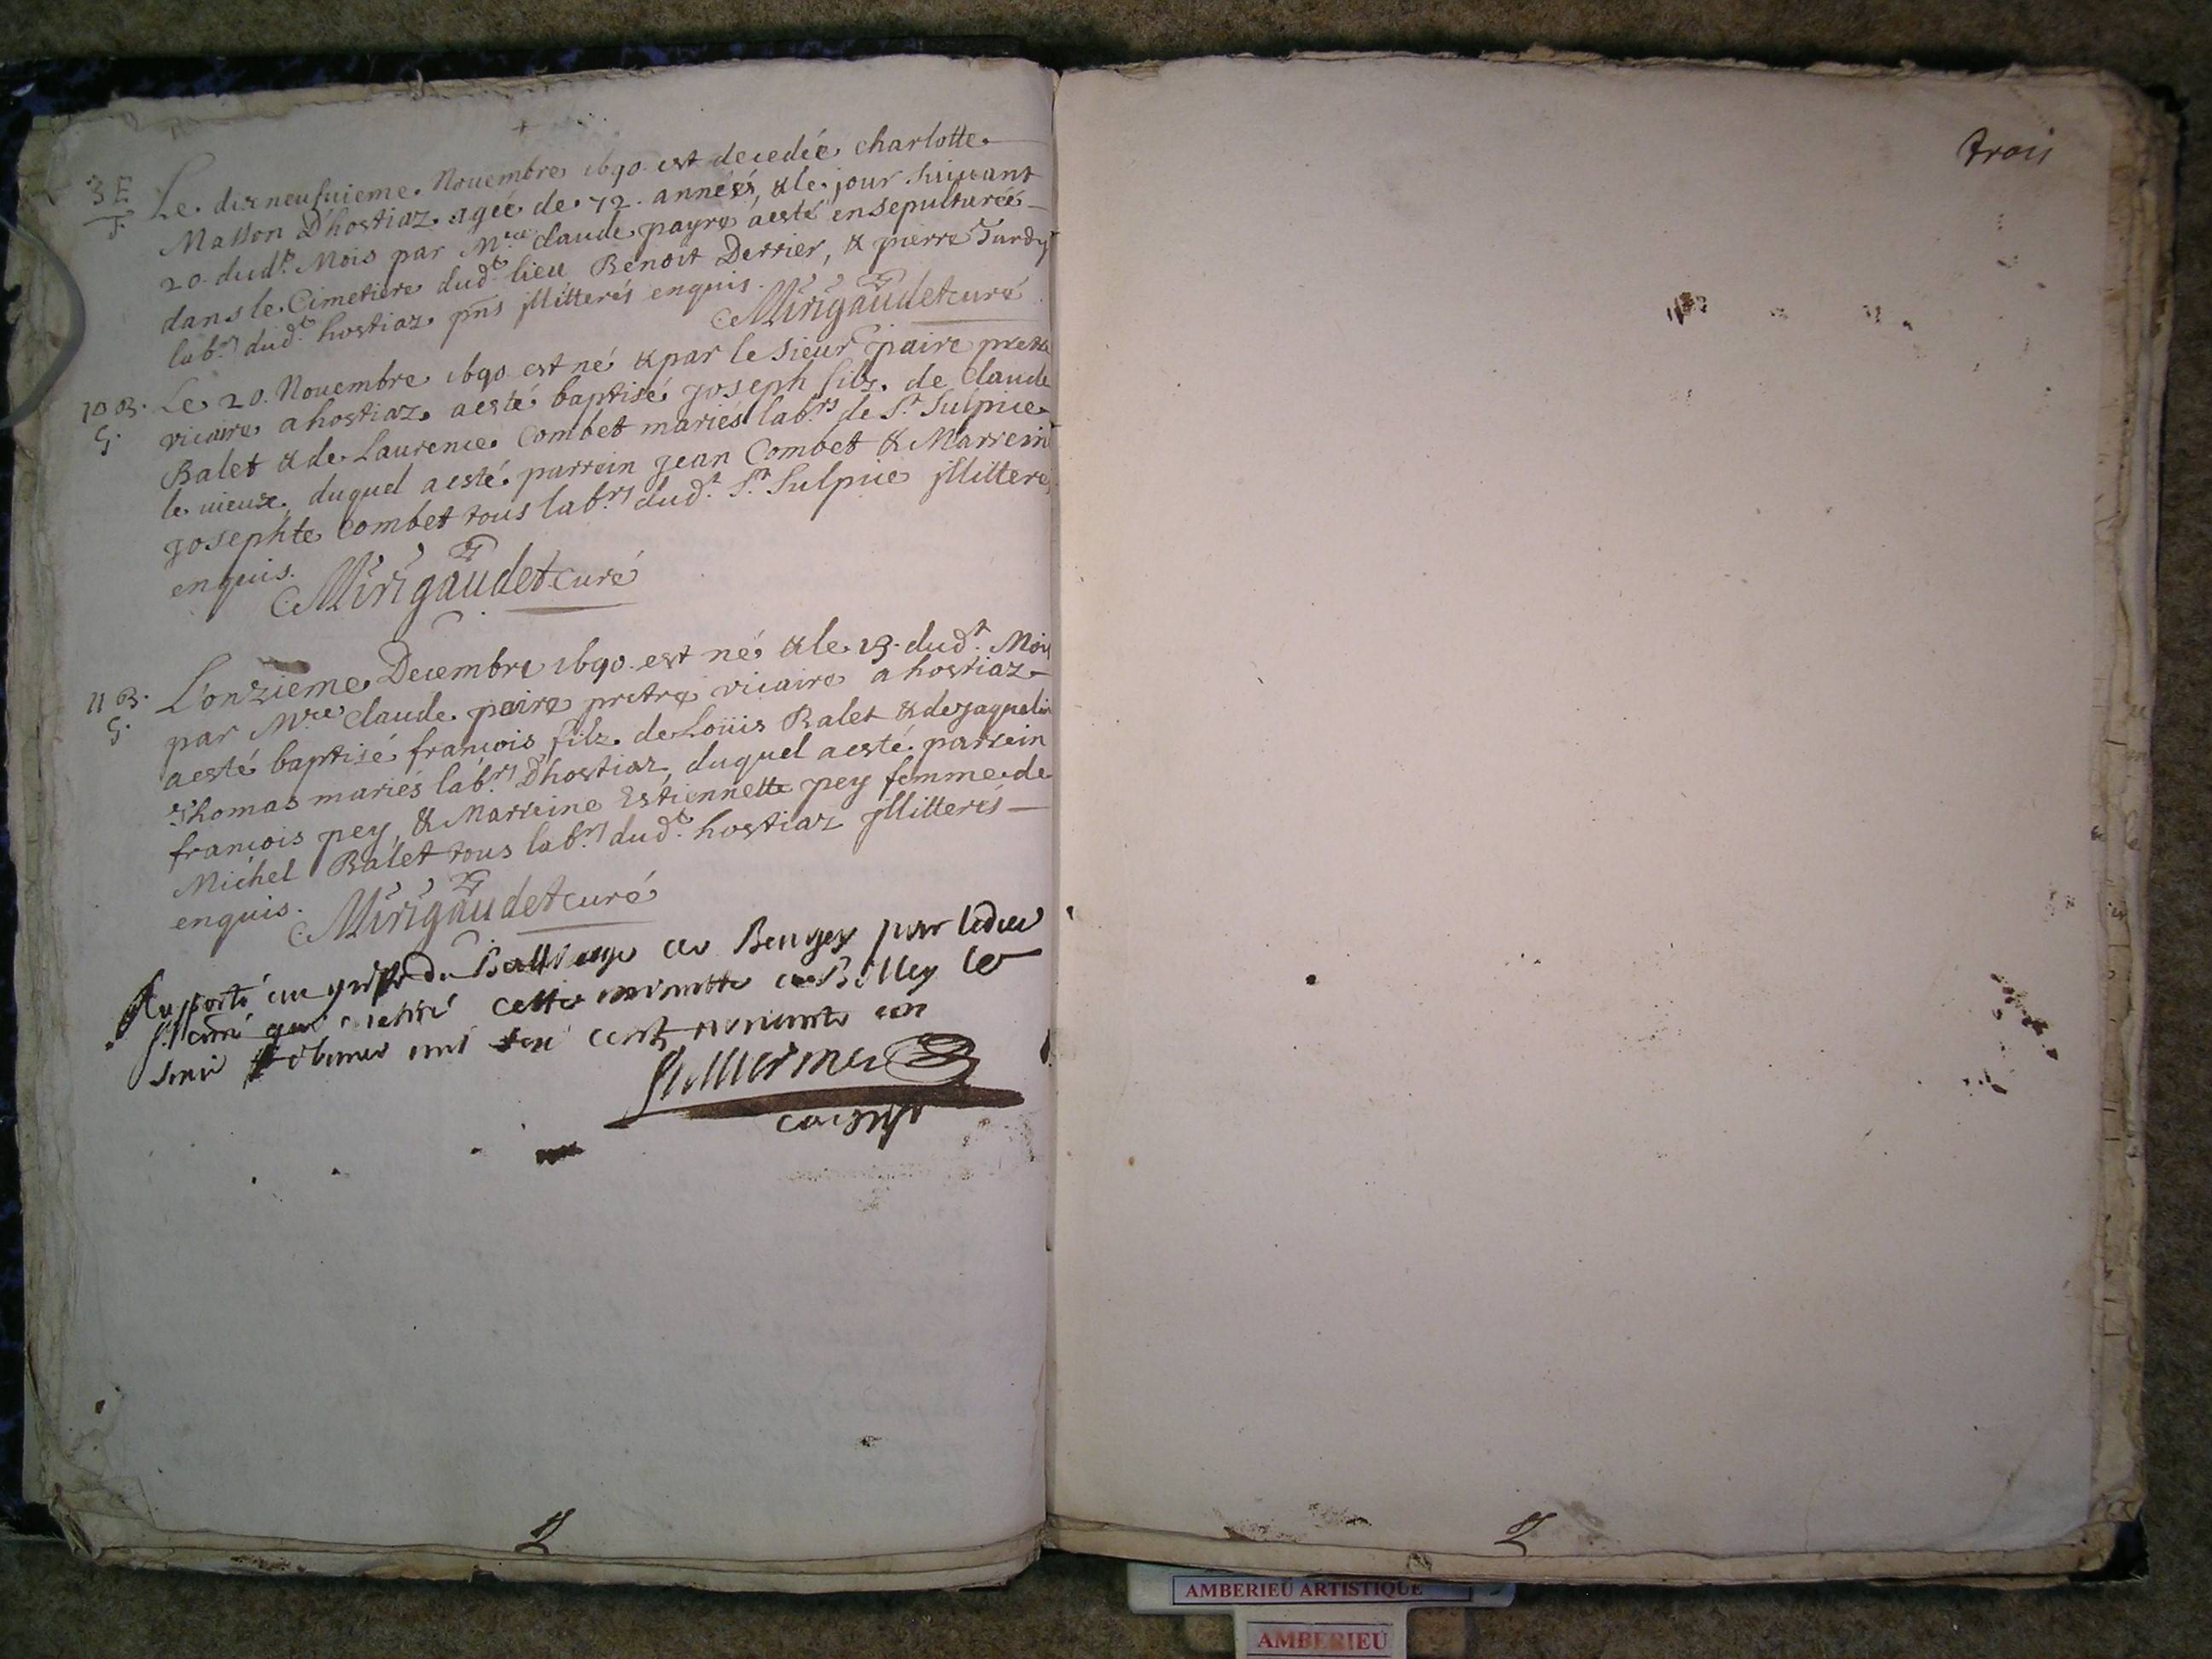 3 E
F
Le dixneufuieme Nouembre 1690 est decedée charlotte
Masson D'hostiaz agée de 72 années, & le jour suiuant
20 dud.t Mois par M.re claude payre a esté ensepulturée
dans le Cimetiere dud.t lieu Benoit Derrier, & pierre Tardy
lab.rs dud.t hostiaz pns jllitterés enquis.
Mirigaudet curé
10 B.
G.
Le 20. Nouembre 1690 est né & par le sieur paire prestre
vicaire a hostiaz a esté baptisé joseph filz de claude
Balet & de Laurence Combet mariés lab.rs de S.t Sulpice
le uieux, duquel a esté parrein jean Combet & Marrein
josephte Combet tous lab.rs dud.t S.t Sulpice jllitterés
enquis.
Mirigaudet curé
11 B.
G.
L'onzieme Decembre 1690 est né & le 13. dud.t Mois
par M.re claude paire pretre vicaire a hostiaz
a esté baptisé françois filz de Loüis Balet & de jaqueline
Thomas mariés lab.rs D'hostiaz, duquel a esté parrein
françois pey, & Marreine Estiennette pey femme de
Michel Balet tous lab.rs dud.t hostiaz jllitterés
enquis.
Mirigaudet curé
Raporté au greffe du Balliage de Beugey par ledit
S.r curé qui a retiré cette minutte a Belley le
mil six cent nonante un
trois
AMBERIEU ARTISTIQUE
AMBERIEU